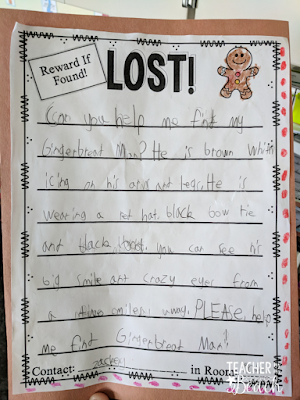 Reward If
Found!
LOST!
Can you help me find my
Gingerbreat Man? He is brown whith
icing on his arms ant legs. He is
wearing a ret hat, black bow tie
and black you can see his
big smile ant crazy eyes from
a away. PLEAse help
me find Gingerbreat Man!
Contact: in Room
TEACHER
Beach